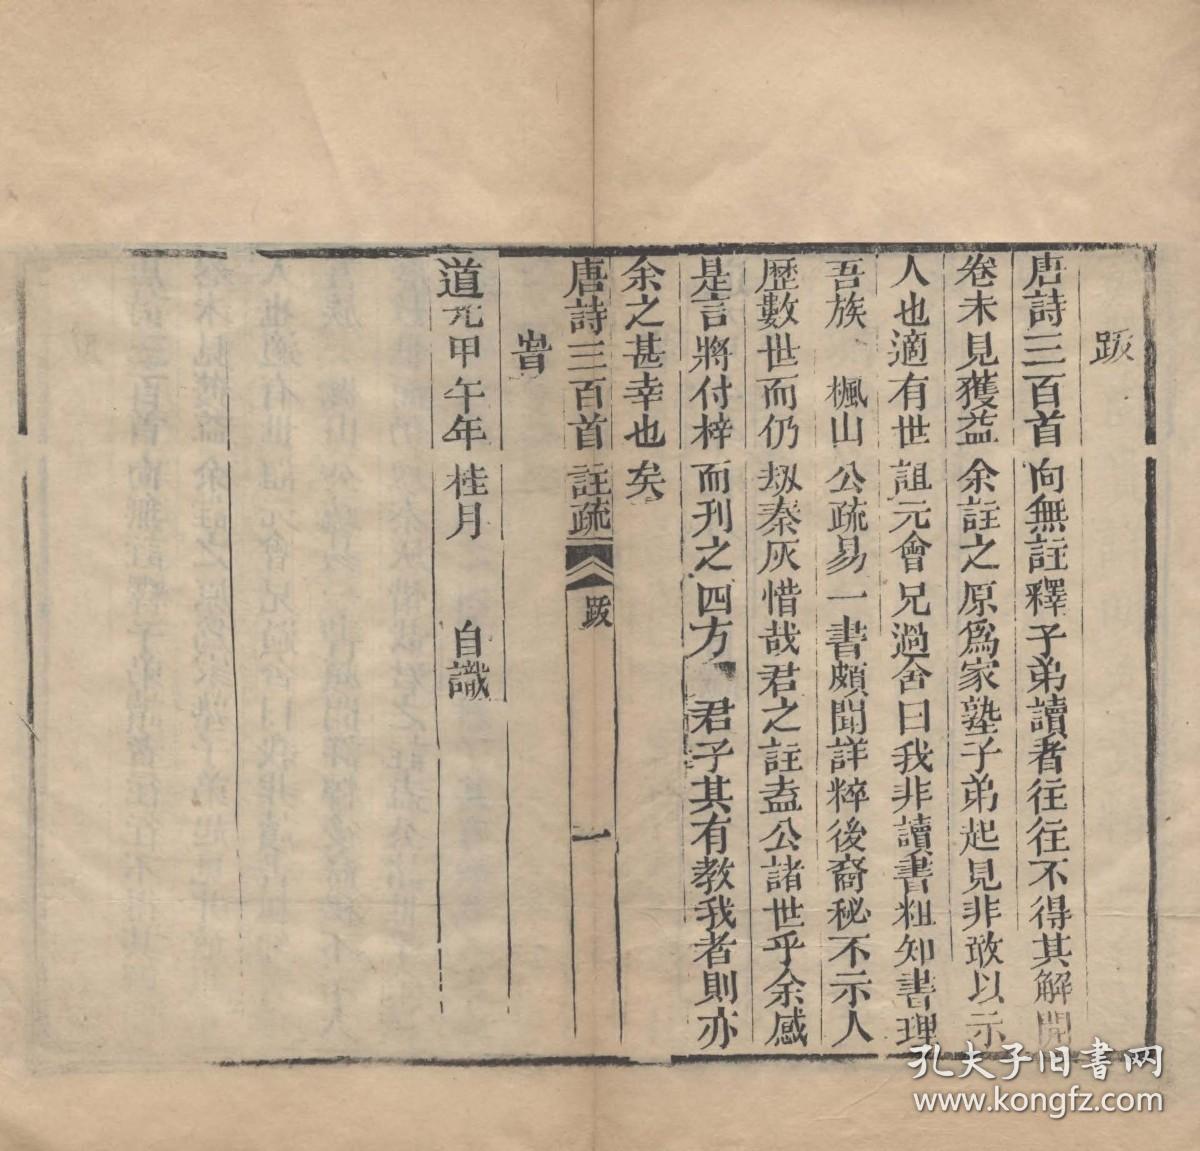 跋
唐詩三百首向無註釋子弟讀者往往不得其解開
卷未見獲益余註之原爲家塾子弟起見非敢以示
人也適有世誼元會兄過舍曰我非讀書粗知書理
吾族 楓山公疏易一書頗聞詳粹後裔秘不示人
歷數世而仍刼秦灰惜哉君之註盍公諸世乎余感
是言將付梓而刋之四方 君子其有教我者則亦
余之甚幸也矣
唐詩三百首註疏 跋 一
旹
道光甲午年桂月 自識
孔夫子旧書网
www.kongfz.com